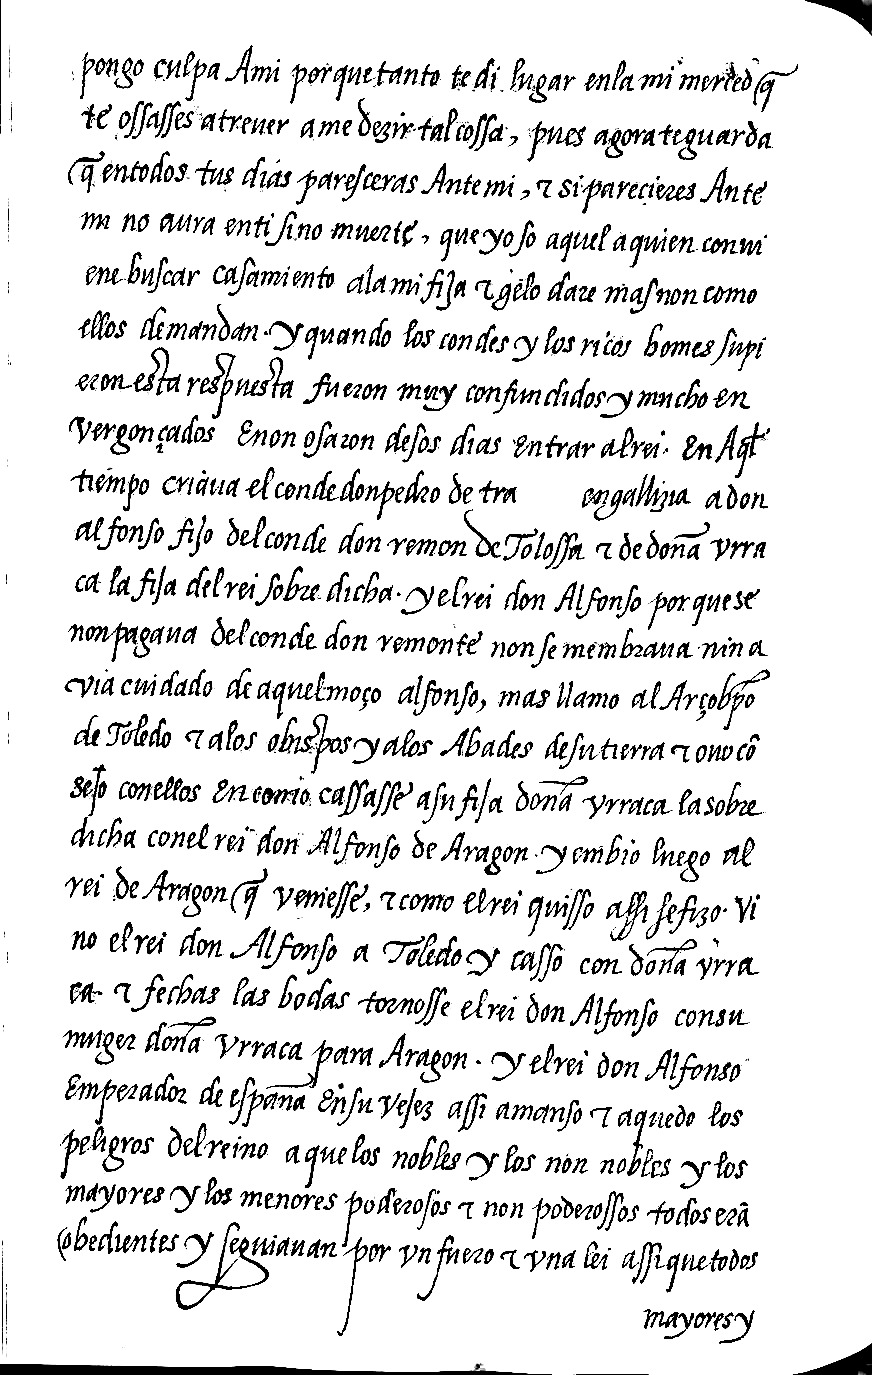 pongo culpa Ami porque tanto te di lugar enla mi merced q̃
te ossasses atreuer a me dezir tal cossa, pues agora te guarda
q̃ en todos tus dias paresceras Ante mi, ⁊ si parecieres Ante
mi no aura en ti sino muerte, que yo so aquel a quien conui
ene buscar casamiento ala mi fija ⁊ gelo dare mas non como
ellos demandan. y quando los condes y los ricos homes supi
eron esta respuesta fueron muy confundidos y mucho en
vergonçados E non osaron desos dias entrar al rei. En Aql̃
tiempo criaua el conde don pedro de tra en gallizia a don
alfonso fijo del conde don remon de Tolossa ⁊ de doña vrra
ca la fija del rei sobre dicha. y el rei don Alfonso por que se
non pagaua del conde don remonte non se membraua nin a
via cuidado de aquel moço alfonso, mas llamo al Arçobpõ
de Toledo ⁊ alos obispos y alos Abades de su tierra ⁊ ouo cõ
sejo conellos En como cassasse a su fija doña vrraca la sobre
dicha con el rei don Alfonso de Aragon. y embio luego al
rei de Aragon q̃ veniesse, ⁊ como el rei quisso assi se fizo. Vi
no el rei don Alfonso a Toledo y casso con doña vrra
ca. ⁊ fechas las bodas tornosse el rei don Alfonso con su
muger doña vrraca para Aragon. y el rei don Alfonso
Emperador de españa En su vejez assi amanso ⁊ aquedo los
peligros del reino a que los nobles y los non nobles y los
mayores y los menores poderosos ⁊ non poderossos todos erã
obedientes y seguiauan por vn fuero ⁊ vna lei assi que todos
mayores y